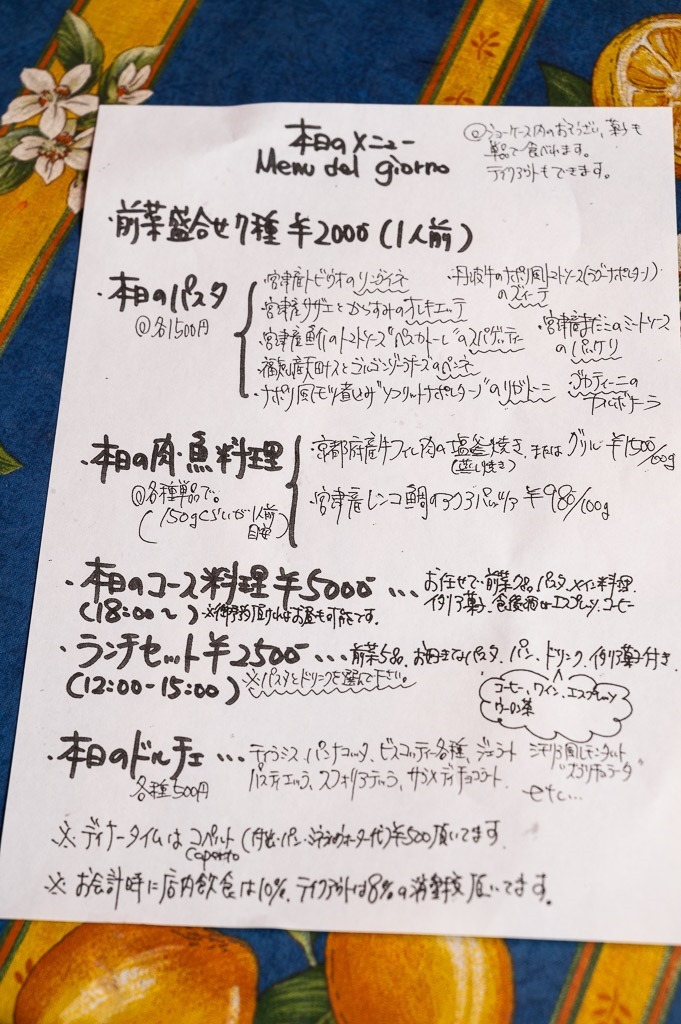 本日のメニュー
Menu del giorno
@ショーケース内のおそうざい、菓子も
単品で食べれます。
テイクアウトもできます。
・前菜盛合せ7種 ¥2000 (1人前)
・本日のパスタ
@各1500円
・宮津産トビウオのリングイネ
・宮津産サザエとからすみのオレキエッテ
・宮津産魚介のトマトソース"ペスカトーレ"のスパゲッティー
・福知山産万田ナスとゴルゴンゾーラチーズのペンネ
・ナポリ風モツ煮込み"ソフリットナポレターノ"のリガトーニ
・丹波牛のナポリ風トマトソース(ラグーナポレターノ)
のズィーテ
・宮津産まだこのミートソース
のパッケリ
・ブカティーニの
カルボナーラ
・本日の肉・魚料理
@各種単品で。
(150gぐらいが1人前
目安)
・京都府産牛フィレ肉の塩釜焼き、または グリル ¥1500/100g
(蒸し焼き)
・宮津産レンコ鯛のアクアパッツァ ¥980/100g
・本日のコース料理 ¥5000 ... お任せで前菜7品、パスタ、メイン料理、
(18:00~) ※御予約頂ければお昼も可能です。 イタリア菓子、食後酒orエスプレッソ、コーヒー
・ランチセット ¥2500 ... 前菜5品、お好きなパスタ、パン、ドリンク、イタリア菓子付き
(12:00-15:00) ※パスタとドリンクを選んで下さい。
コーヒー、ワイン、エスプレッソ
ウーロン茶
・本日のドルチェ ... ティラミス、パンナコッタ、ビスコッティー各種、ジェラート
各種500円
パスティエッラ、スフォリアテッラ、サラメディチョコラート
シチリア風レモンタルト
etc...
※ ディナータイムは コペルト (付出・パン・ミネラルウォーター代) ¥500頂いてます。
Coperto
※ お会計時に店内飲食は10%、テイクアウトは8%の消費税頂いてます。